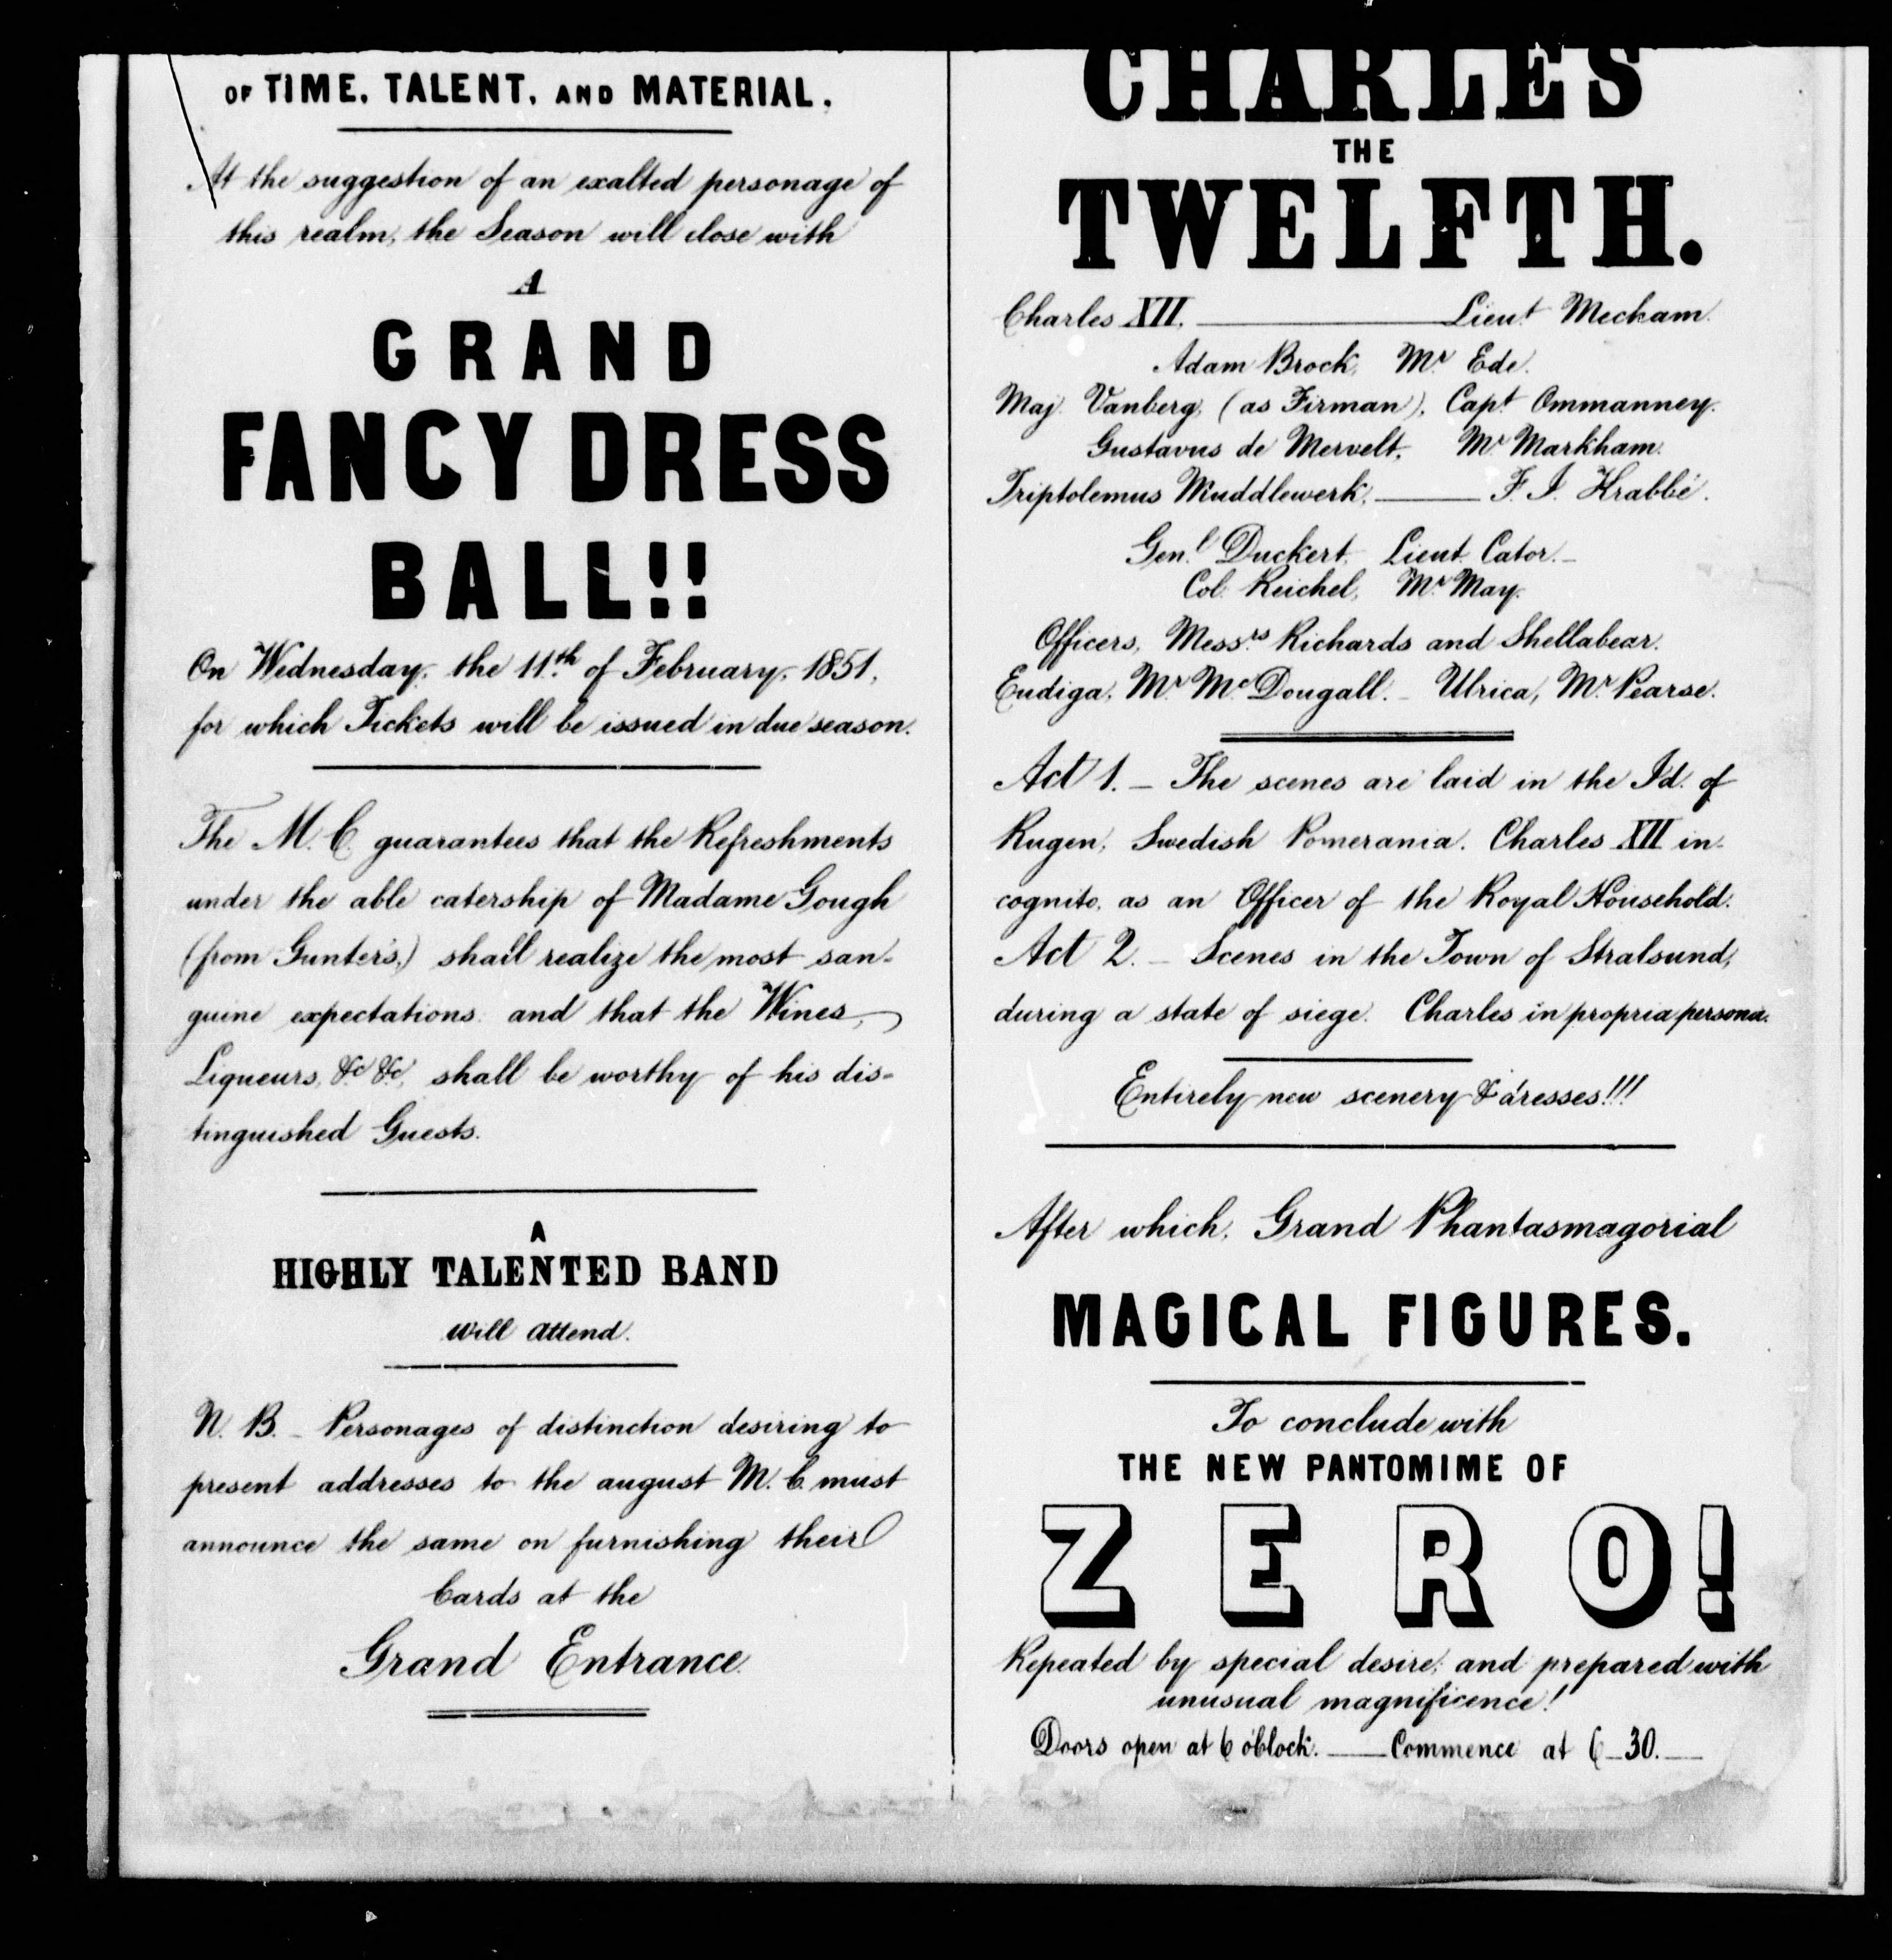 OF TIME, TALENT, AND MATERIAL,
At the suggestion of an exalted personage of
this realm, the Season will close with
A
GRAND
FANCY DRESS
BALL!!
On Wednesday, the 11th of February, 1851,
for which Tickets will be issued in due season.
The M. C. guarantees that the Refreshments
under the able catership of Madame Gough
(from Gunter's,) shall realize the most san-
guine expectations and that the Wines,
Liqueurs, &c &c, shall be worthy of his dis-
tinguished Guests.
A
HIGHLY TALENTED BAND
will attend.
N. B. – Personages of distinction desiring to
present addresses to the august M. C. must
announce the same on furnishing their
Cards at the
Grand Entrance.
CHARLES
THE
TWELFTH.
Charles XII, Lieut Mecham.
Adam Brock, Mr Ede.
Maj. Vanberg, (as Firman), Capt Ommanney.
Gustavus de Mervelt, Mr Markham.
Triptolemus Muddlewerk, F. J. Krabbé.
Genl Duckert, Lieut Cator. –
Col. Reichel, Mr May.
Officers, Messrs Richards and Shellabear.
Eudiga, Mr McDougall. – Ulrica, Mr Pearse.
Act 1. – The scenes are laid in the Id. of
Rugen, Swedish Pomerania. Charles XII in-
cognito, as an Officer of the Royal Household.
Act 2. – Scenes in the Town of Stralsund,
during a state of siege. Charles in propria persona.
Entirely new scenery & dresses!!!
After which, Grand Phantasmagorial
MAGICAL FIGURES.
To conclude with
THE NEW PANTOMIME OF
ZERO!
Repeated by special desire, and prepared with
unusual magnificence!
Doors open at 6 o'Clock. — Commence at 6–30. —